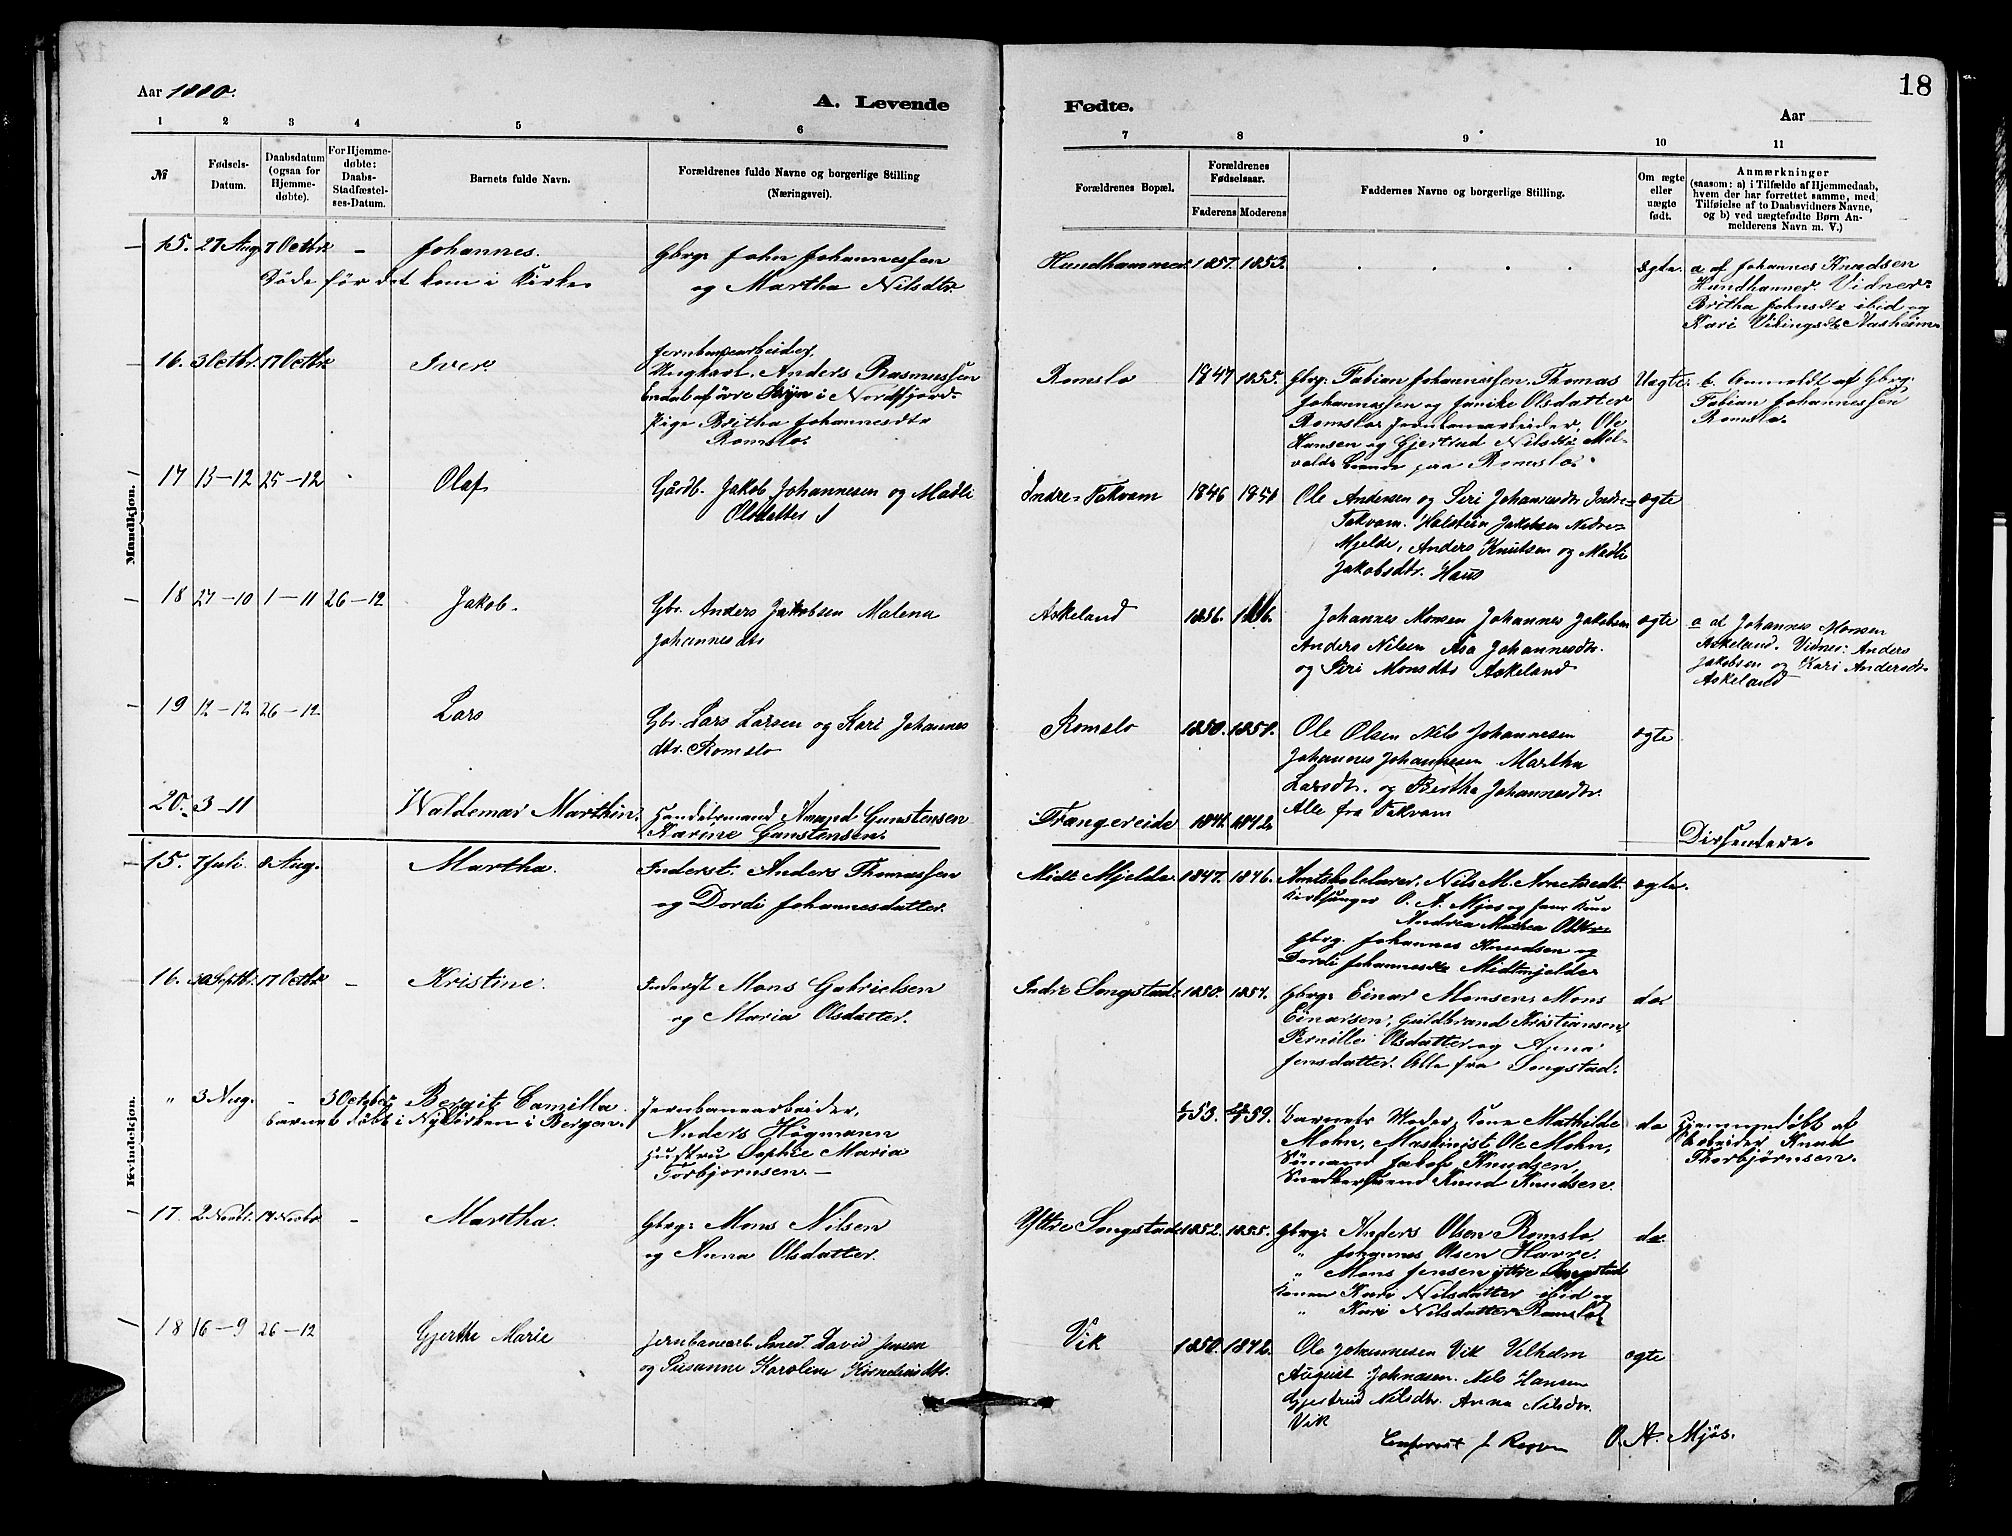 18
Aar 1880.
A. Levende
Fødte.
Aar
1 2 3 4 5 6
7 8 9 10 11
№
Fødsels-
Datum.
Daabsdatum
(ogsaa for
Hjemme-
døbte).
For Hjemme-
døbte:
Daabs-
Stadfæstel-
ses-Datum.
Barnets fulde Navn.
Forældrenes fulde Navne og borgerlige Stilling
(Næringsvei).
Forældrenes Bopæl.
Forældrenes
Fødselsaar.
Faderens Moderens
Faddernes Navne og borgerlige Stilling.
Om ægte
eller
uægte
født.
Anmærkninger
(saasom: a) i Tilfælde af Hjemmedaab,
hvem der har forrettet samme, med
Tilføielse af to Daabsvidners Navne,
og b) ved uægtefødte Børn An-
melderens Navn m. V.)
Mandkjøn.
15. 27 Aug. 7 Octbr. – Johannes. Gbrg: John Johannessen
Døde før det kom i Kirke. og Martha Nilsdtr.
Hundhammer. 1857. 1853. ægte. a af Johannes Knudsen
Hundhammer. Vidner:
Britha Johnsdtr ibid og
Kari Vikingsdtr Aasheim.
16. 3 Octbr. 17 Octbr Iver. Jernbanearbeider,
Ungkarl. Anders Rasmussen
i Nordfjord.
Pige Britha Johannesdtr
Romslo.
Romslo 1847 1855. Gbrg: Fabian Johannessen. Thomas
Johannessen og Janike Olsdatter
Romslo. Jernbanearbeider, Ole
Hansen og Gjertrud Nilsdtr
paa Romslo.
Uægte. b. Anmeldt af Gbrg.
Fabian Johannessen
Romslo.
17 13–12 25–12 Olaf Gårdb. Jakob Johannesen og Madli
Olsdatter
Indre Takvam 1846 1851 Ole Andersen og Siri Johannesdtr Indre-
Takvam. Halstein Jakobsen Nedre
Mjelde, Anders Knutsen og Madli
Jakobsdtr. Haus
ægte
18 27–10 1–11 26–12 Jakob. Gbr. Anders Jakobsen Malena
Johannesdtr
Askeland 1856. Johannes Monsen Johannes Jakobsen
Anders Nilsen Åsa Johannesdtr.
og Siri Monsdtr Askeland
ægte a af Johannes Monsen
Askeland. Vidner: Anders
Jakobsen og Kari Andersdtr.
Askeland
19 12–12 26–12 Lars Gbr. Lars Larsen og Kari Johannes
dtr. Romslo
Romslo 1850. 1851. Ole Olsen Nils Johannesen
Johannes Johannesen Martha
Larsdtr. og Bertha Johannesdtr.
Alle fra Takvam
ægte
20. 3–11 Waldemar Marthin. Handelsmand Amund Gunstensen
Karine Gunstensen.
Trængereide 1842. Dissentere.
Kvindekjøn.
15. 7 Juli. 8 Aug. Martha. Inderst. Anders Thomassen
og Dordi Johannesdatter.
Midt Mjelde. 1847. 1846. Amtskolelærer, Nils M. Arnetvedt.
Kirkesanger O. A. Mjøs og
Andrea Mathea
Gbrg. Johannes Knudsen og
Dordi Johannesdtr Midtmjelde
ægte.
16. 30 Septbr. 17 Octbr – Kristine. Inderst Mons Gabrielsen
og Maria Olsdatter.
Indre Songstad. 1850. 1857. Gbrg: Einar Monsen, Mons
Einarsen, Guldbrand Kristiansen,
Pernille Olsdatter og Anna
Jensdatter. Alle fra Songstad.
do
" 3 Aug. – 3 October Bergit Camilla. Jernbanearbeider,
barnet døbt i Nykirken i Bergen. Anders Högmann
Hustru Sophie Maria
Torbjørnsen. –
53. 59. Barnets Moder, Kone Mathilde
Mohn, Maskinist Ole Mohn,
Sömand Jakob Knudsen,
Snedkersvend Knud Knudsen.
do Hjemmedøbt af
Arbeider Knud
Thorbjørnsen.
17. 2 Novbr. 14 Novbr – Martha. Gbrg: Mons Nilsen
og Anna Olsdatter.
Yttre Songstad 1852. 1855. Gbrg: Anders Olsen Romslo
" Johannes Olsen Havre.
" Mons Jensen yttre Songstad
Konen Kari Nilsdatter ibid og
" Kari Nilsdatter Romslo
do.
18 16–9 26–12 Gjerthe Marie Jernbanearb. Smed. David Jensen
og Susanne Karoline Korneliusdtr.
Vik 1850. 1842. Ole Johannesen Vik Vilhelm
August Johnasen. Nils Hansen
Gjestrud Nilsdtr. Anna Nilsdtr.
Vik
ægte
Confereret J. O. A. Mjøs.